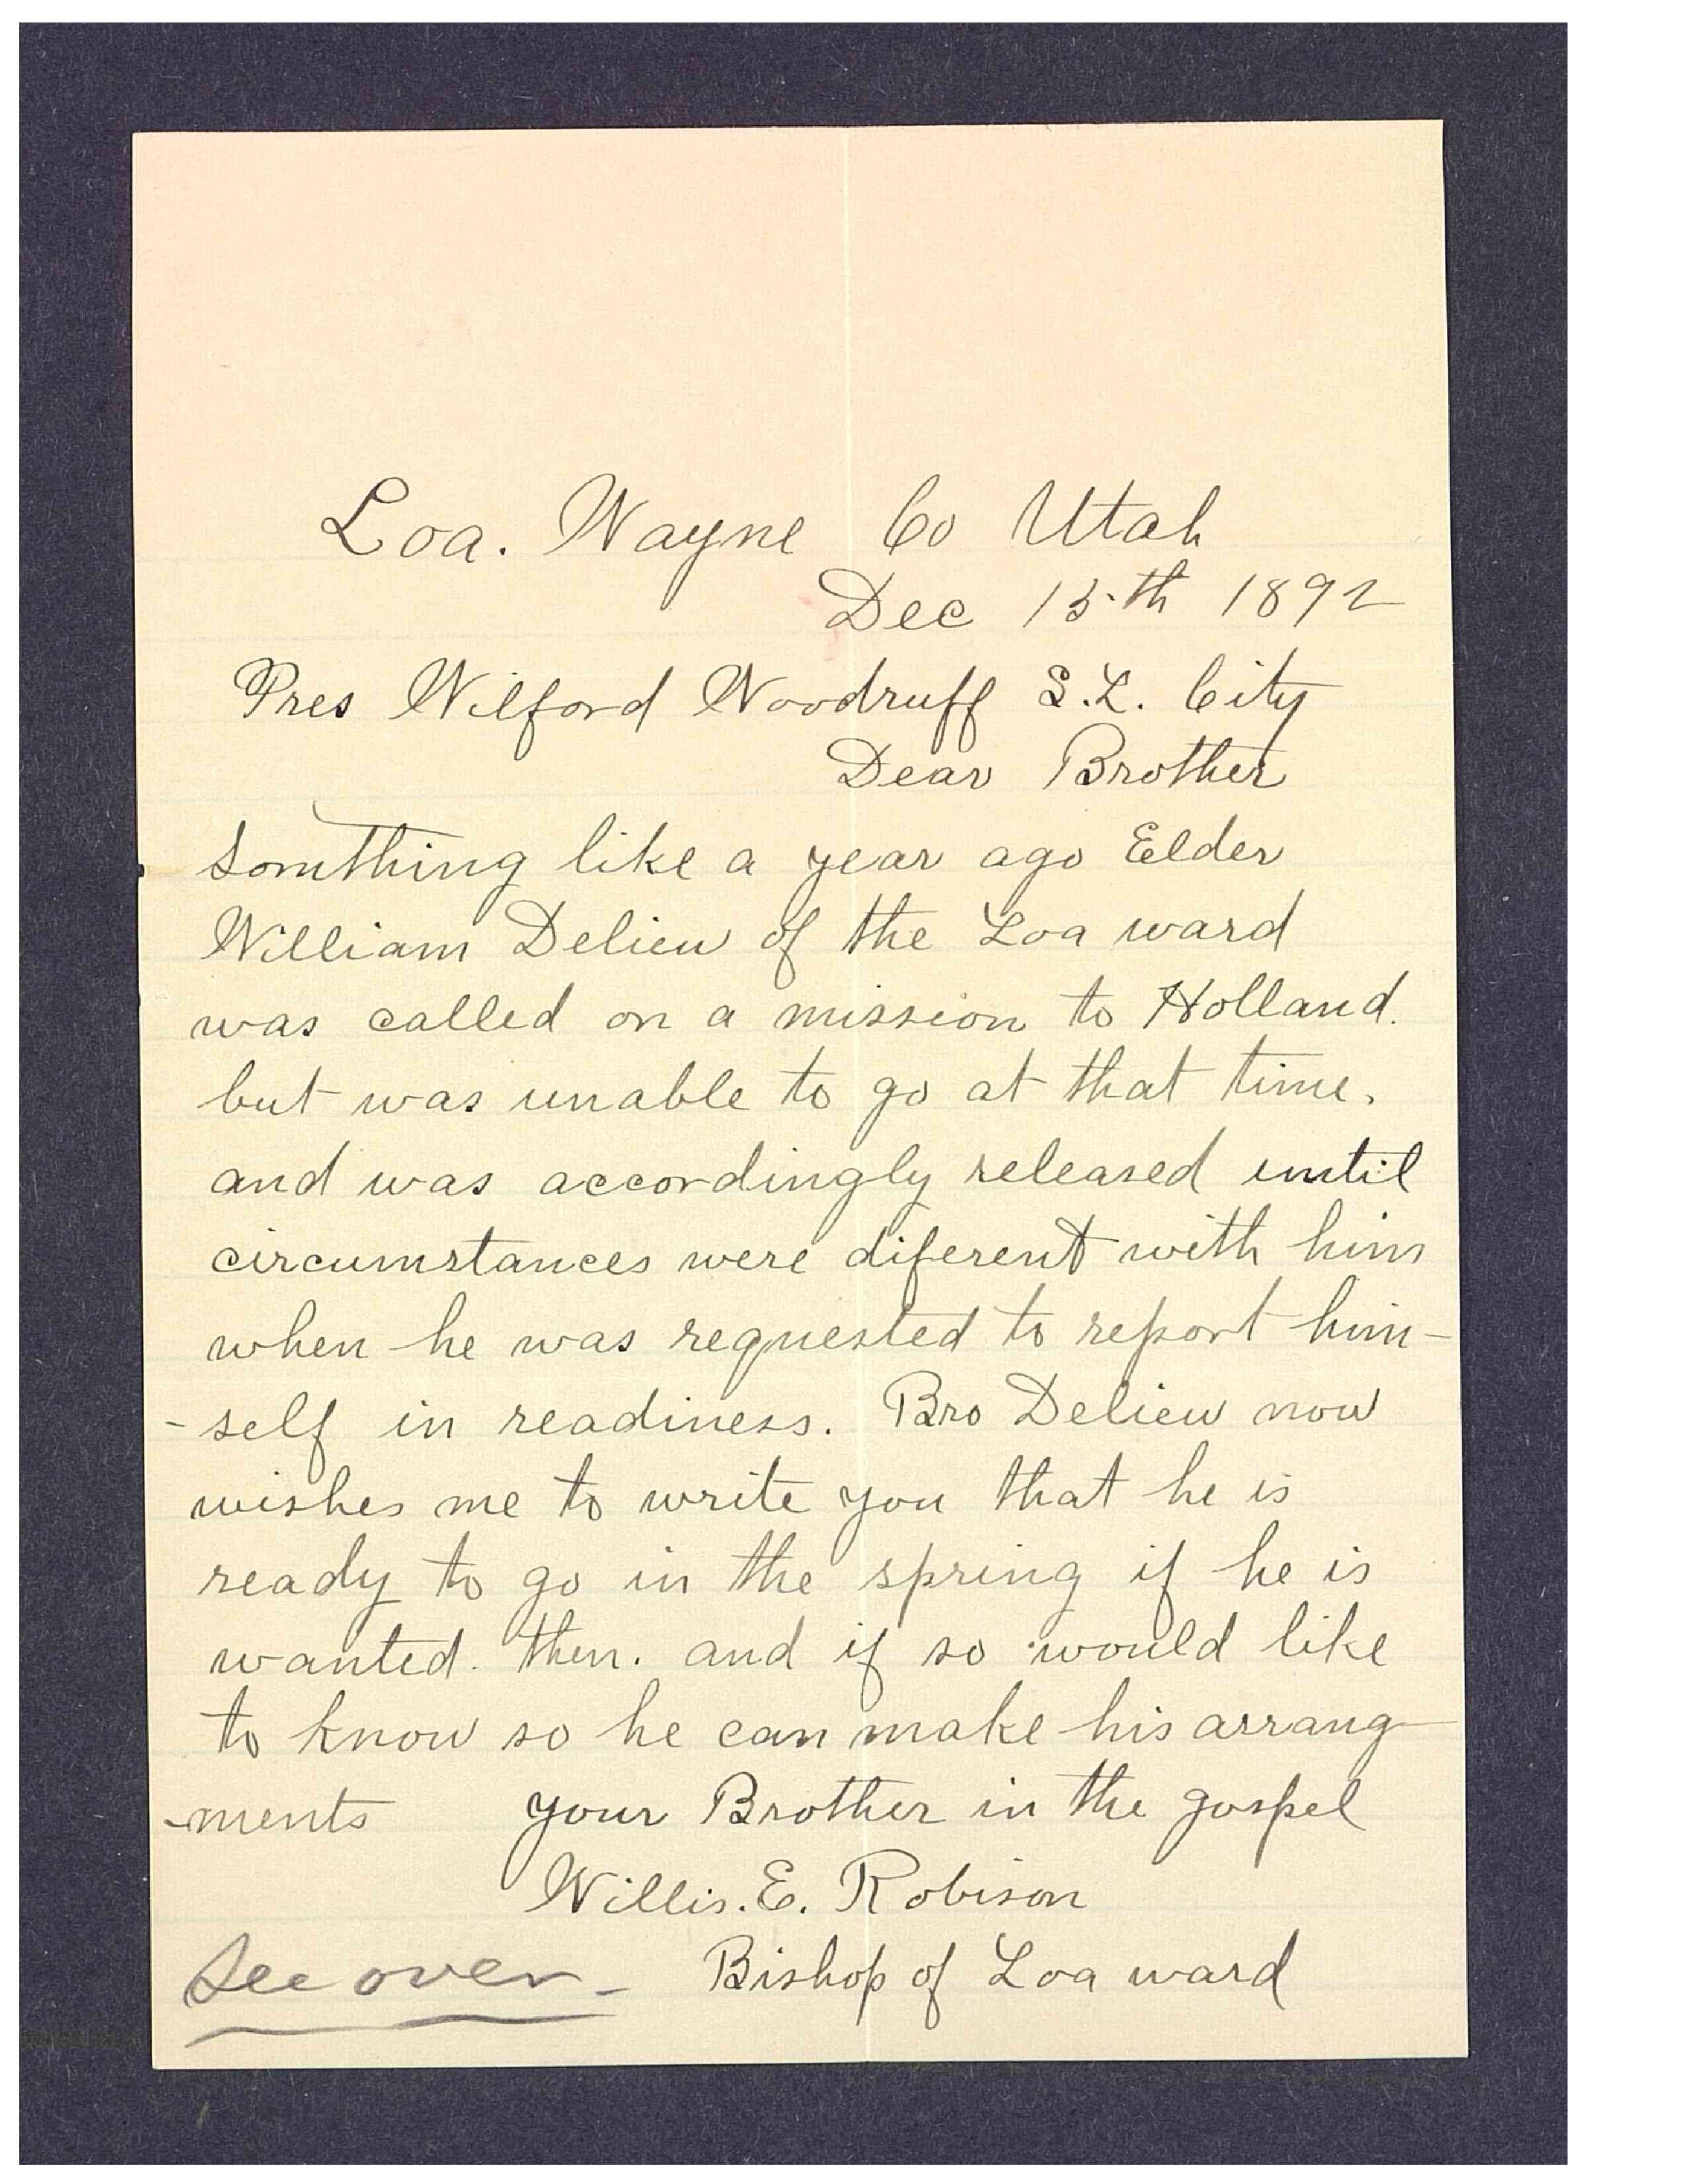 Loa. Wayne Co Utah
Dec 15th 1892
Pres Wilford Woodruff S.L. City
Dear Brother
Somthing like a year ago Elder
William Delieu of the Loa ward
was called on a mission to Holland.
but was unable to go at that time.
and was accordingly released until
circumstances were diferent with him
when he was requested to report him-
-self in readiness. Bro Delieu now
wishes me to write you that he is
ready to go in the spring if he is
wanted. then. and if so would like
to know so he can make his arrang-
-ments your Brother in the gospel
Willis. E. Robison
See over - Bishop of Loa ward